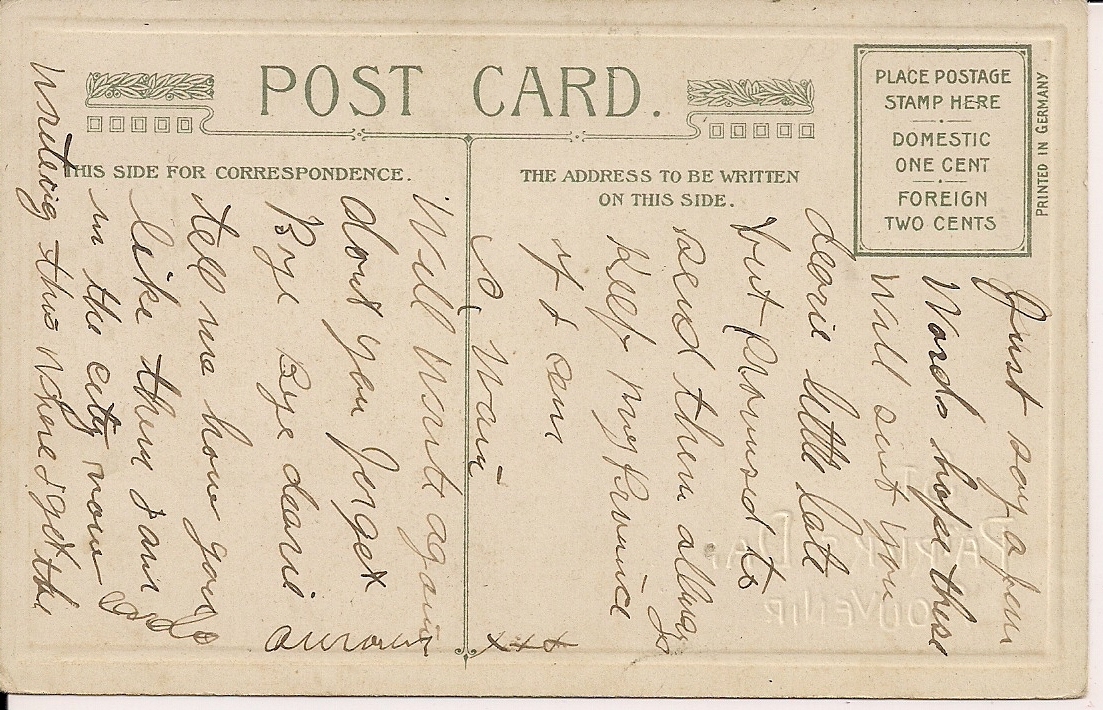 POST CARD.
THIS SIDE FOR CORRESPONDENCE.
THE ADDRESS TO BE WRITTEN
ON THIS SIDE.
PLACE POSTAGE
STAMP HERE
DOMESTIC
ONE CENT
FOREIGN
TWO CENTS
PRINTED IN GERMANY
Just say a few
Words hope these
will suit you
dearie little late
but Promisd to
send them allways
keep my Promice
if I can
Will write again
dont you forget
Bye Bye dearie
tell me how you
like them I am
in the city now
writeing this where I get the
cards
xxx
SOUVENIR